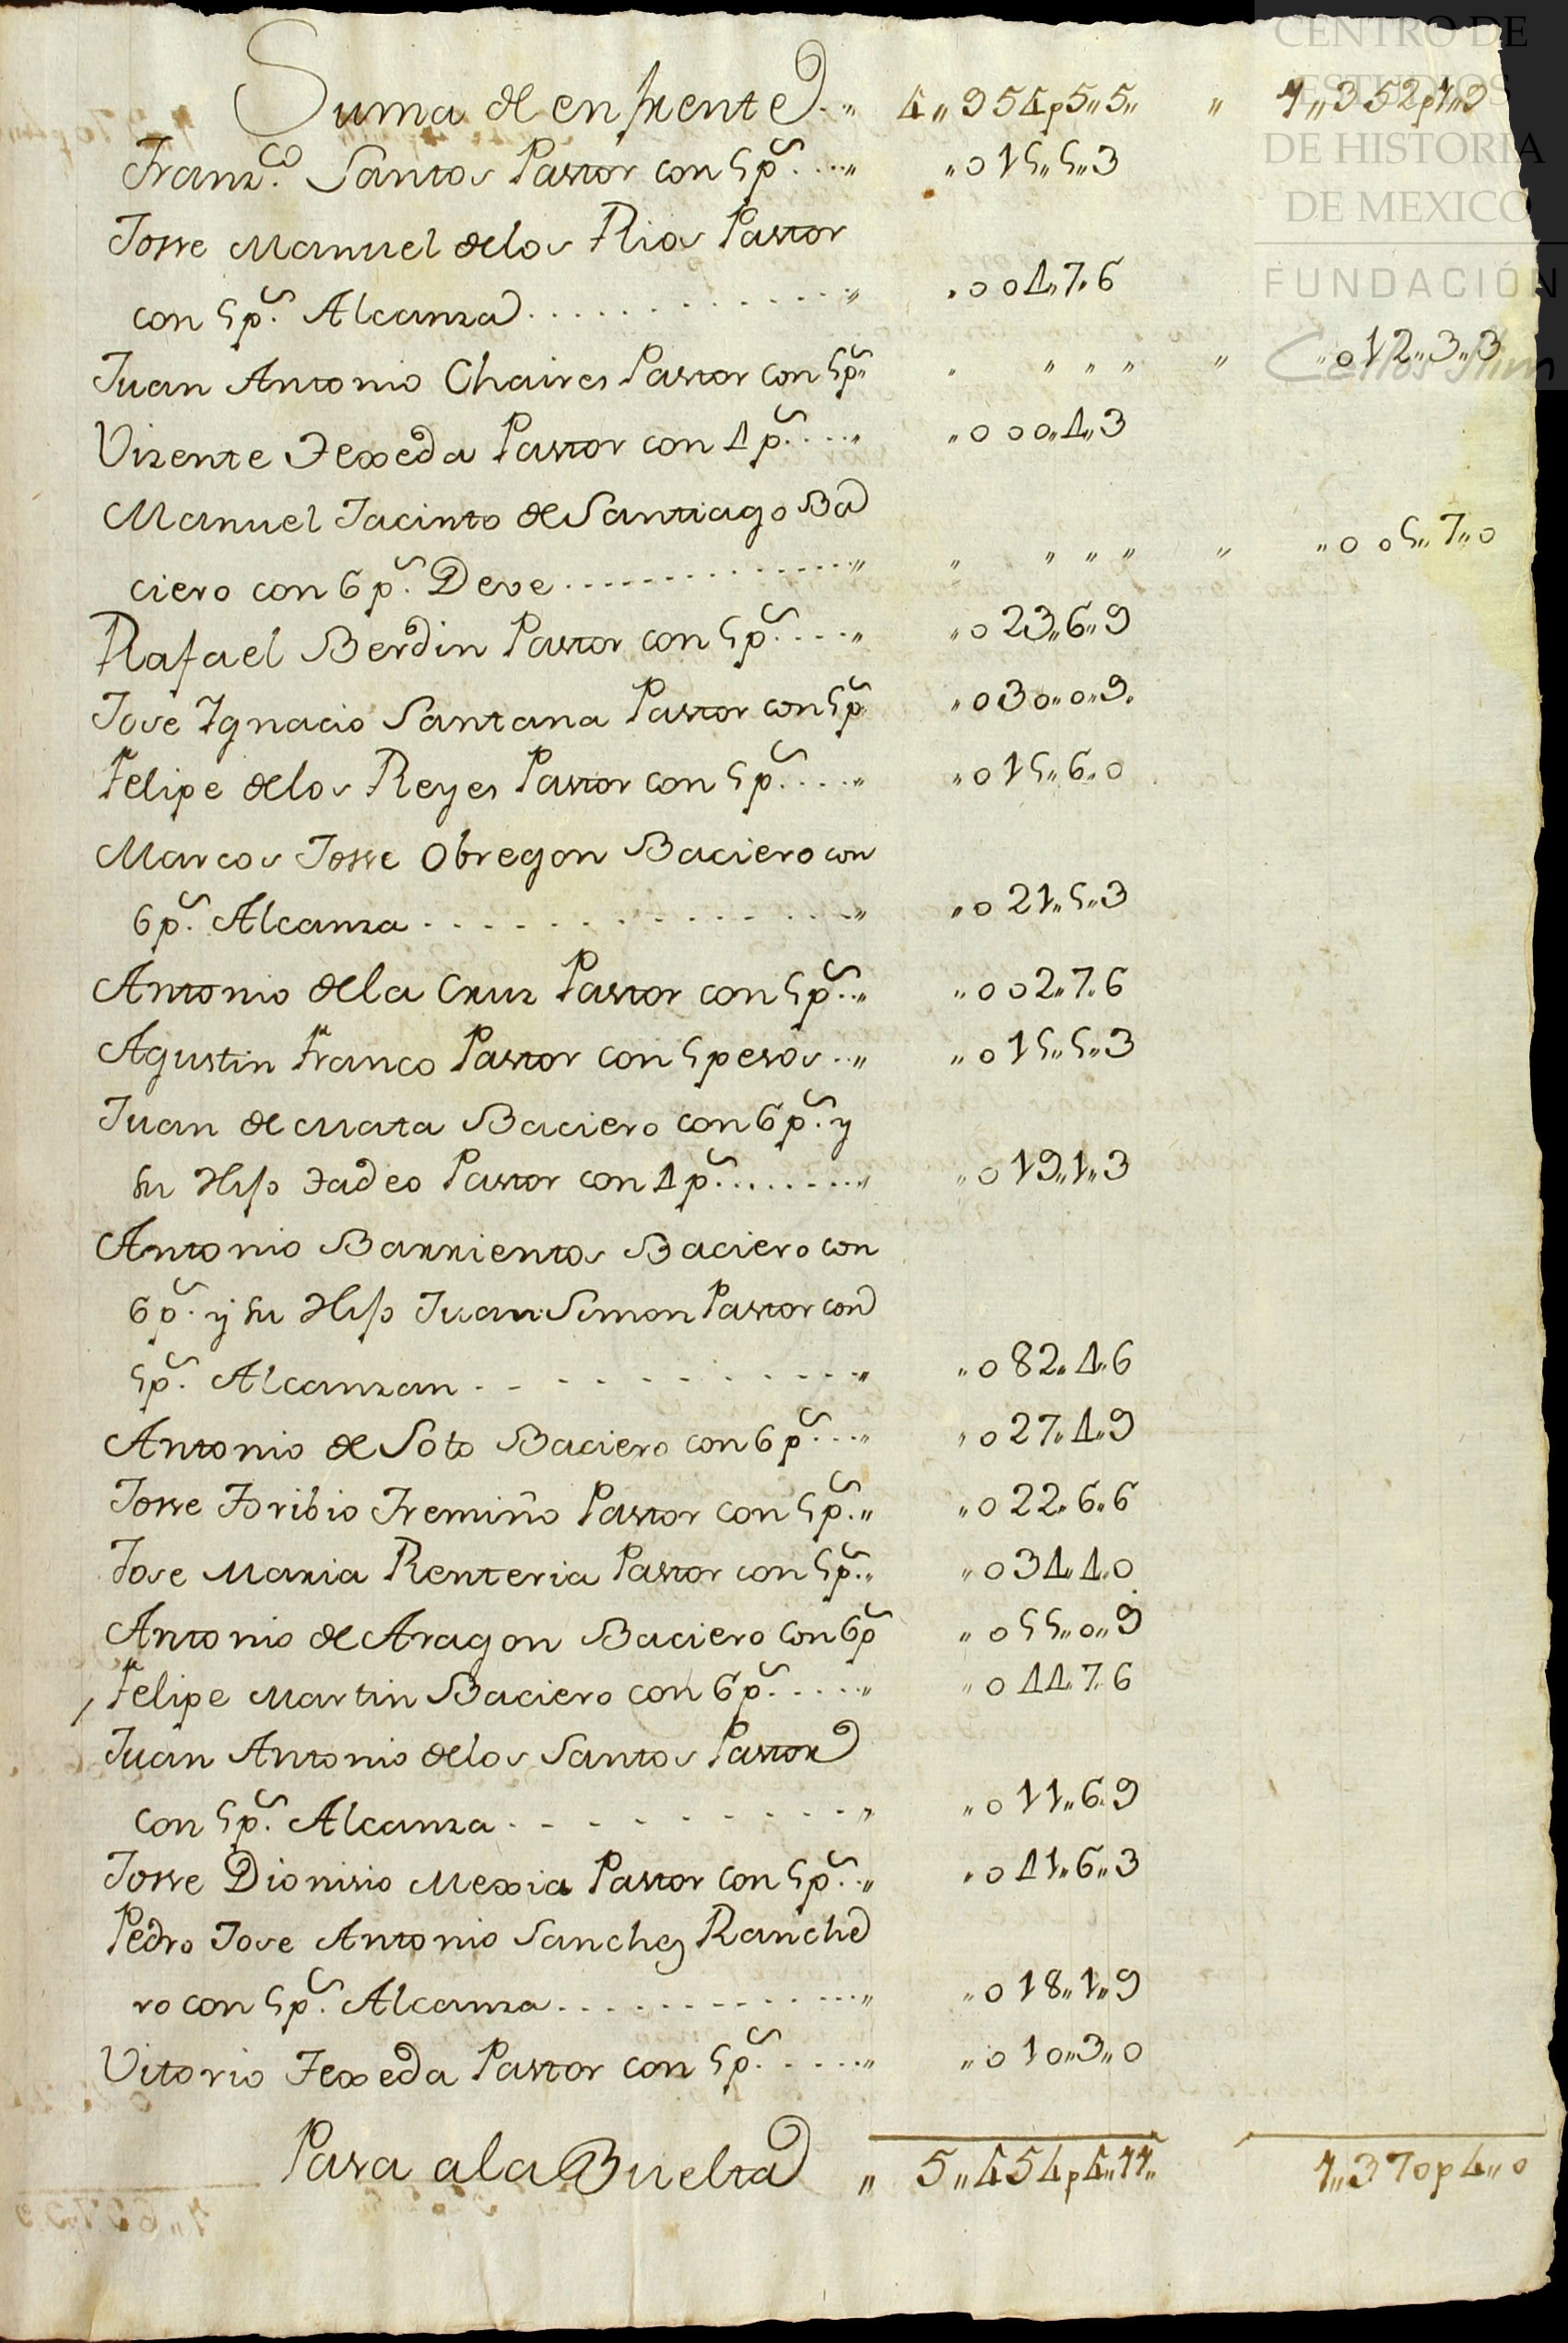 Suma de enfrente..„ 4„954p5„5„ „ 1„352p1„9
Franz.co Santos Pastor con 5p.s ...„ „015„5„3
Josse Manuel delos Rios Pastor
con 5p.s Alcanza..........„ „004„7„6
Juan Antonio Chaires Pastor con 5p.s „ „ „ „ „ „012„3„3
Vizente Texeda Pastor con 4p.s....„ „000„4„3
Manuel Jacinto de Santiago Ba
ciero con 6p.s Deve..............„ „ „ „ „ „ „005„7„0
Rafael Berdin Pastor con 5p.s....„ „023„6„9
Jose Ygnacio Santana Pastor con 5p.s „030„0„9.
Felipe delos Reyes Pastor con 5p.s....„ „015„6„0
Marcos Josse Obregon Baciero con
6p.s Alcanza............„ „021„5„3
Antonio dela Cruz Pastor con 5p.s..„ „002„7„6
Agustin Franco Pastor con 5 pesos..„ „015„5„3
Juan de Mata Baciero con 6p.s y
su Hijo Tadeo Pastor con 4p.s........„ „019„1„3
Antonio Barrientos Baciero con
6p.s y su Hijo Juan Simon Pastor con
5p.s Alcanzan...........„ „082„4„6
Antonio de Soto Baciero con 6p.s...„ „027„4„9
Josse Toribio Tremiño Pastor con 5p.s.„ „022„6„6
Jose Maria Renteria Pastor con 5p.s.„ „034„4„0
Antonio de Aragon Baciero con 6p.s „055„0„9
Felipe Martin Baciero con 6p.s.....„ „044„7„6
Juan Antonio delos Santos Pastor
con 5p.s Alcanza..........„ „011„6„9
Josse Dionisio Mexia Pastor con 5p.s.„ „041„6„3
Pedro Jose Antonio Sanchez Ranche
ro con 5p.s Alcanza.............„ „018„1„9
Vitorio Texeda Pastor con 5p.s.....„ „010„3„0
Pasa ala Buelta „ 5„454p4„11„ 1„370p4„0
CENTRO DE
ESTUDIOS
DE HISTORIA
DE MEXICO
FUNDACIÓN
Carlos Slim